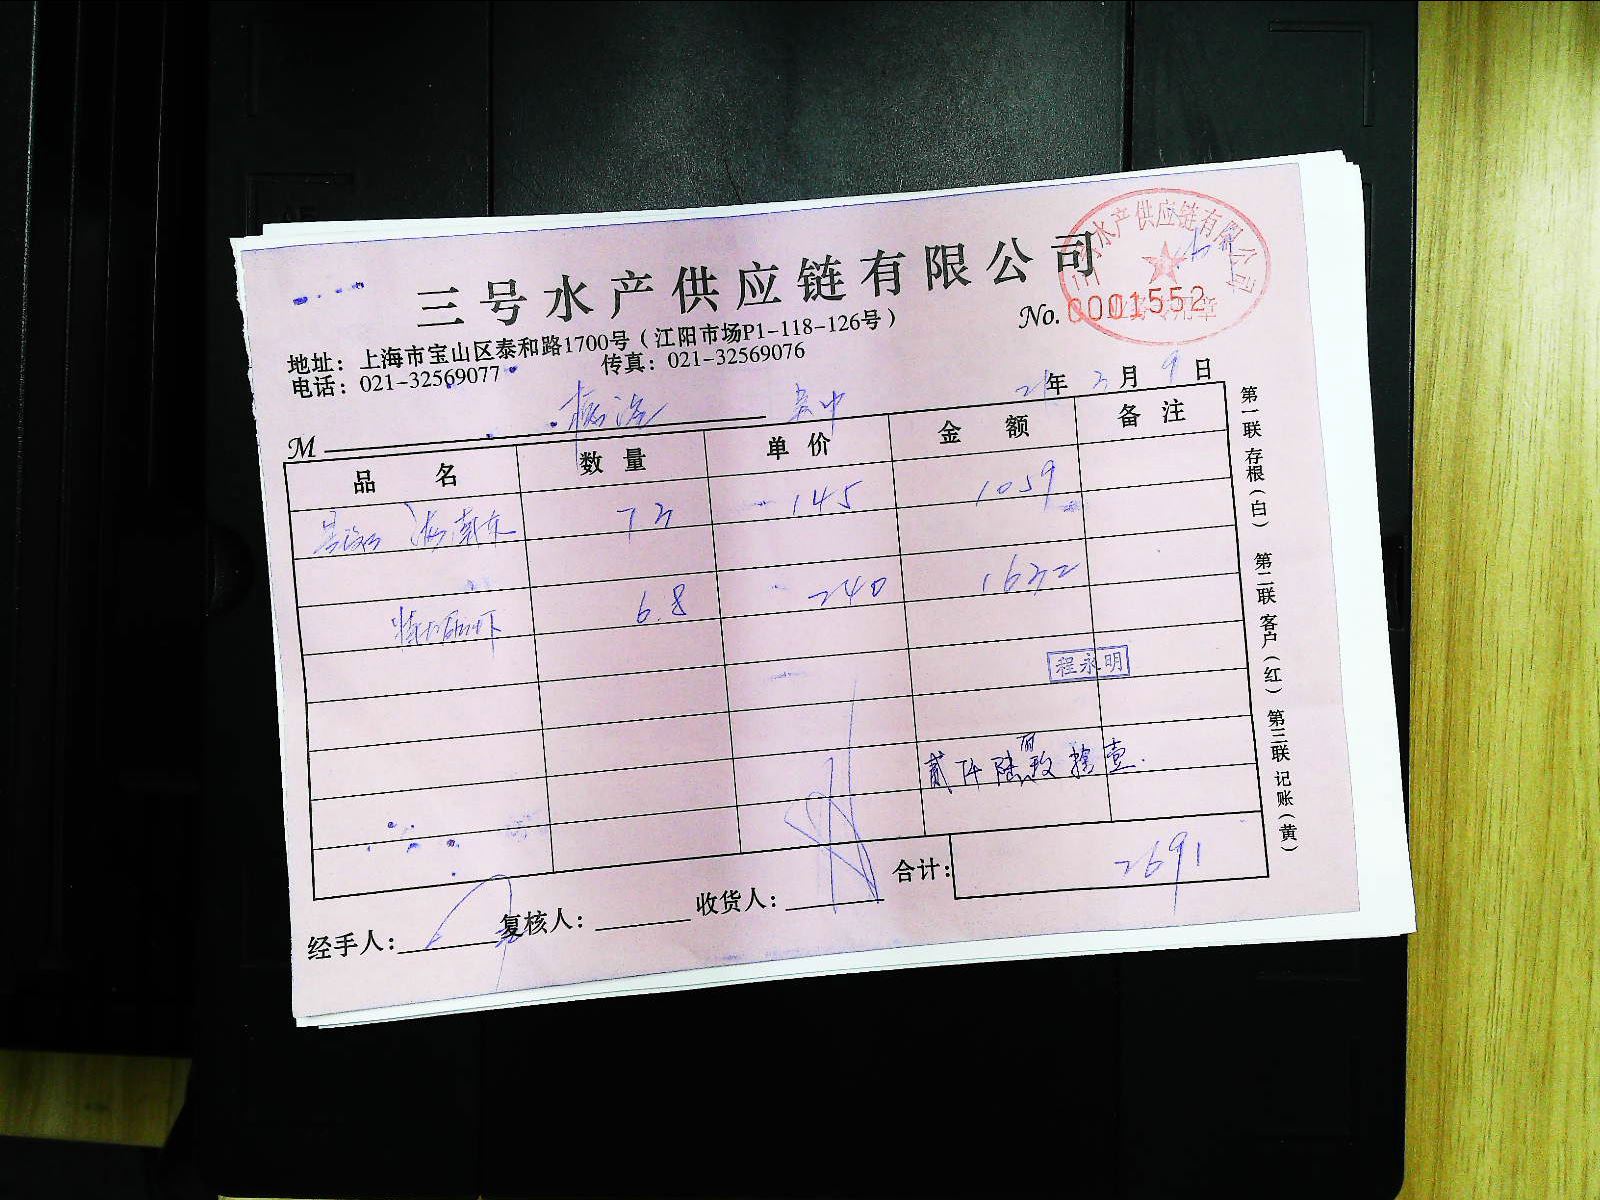 三号水产供应链有限公司
三号水产供应链有限公司
No. 0001552
地址：上海市宝山区泰和路1700号（江阳市场P1-118-126号）
电话：021-32569077 传真：021-32569076
21年3月9日
M
品名 数量 单价 金额 备注
73 145 1059
6.8 240 1632
程永明
贰仟陆佰玖拾壹
合计：2691
经手人： 复核人： 收货人：
第一联 存根（白） 第二联 客户（红） 第三联 记账（黄）